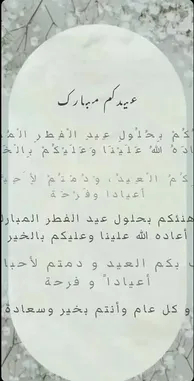 عيدكم مبارك
بحلول عيد الفطر
الله علينا وعليكم
العيد، ودمتم
أعيادا وفرحة
هنئكم بحلول عيد الفطر المبارك
أعاده الله علينا وعليكم بالخير
بكم العيد و دمتم لأحبا
أعياداً و فرحة
و كل عام وأنتم بخير وسعادة